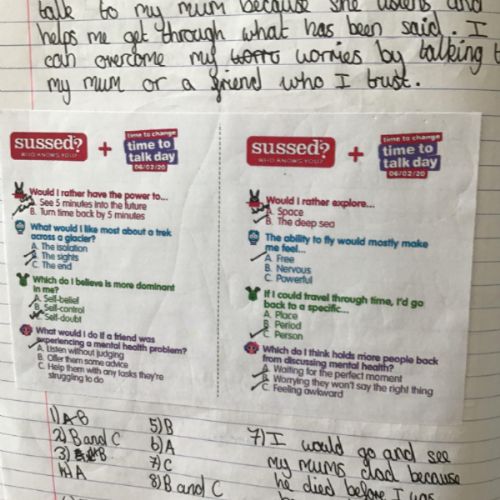 talk to my mum because she listens and
helps me get through what has been said. I
can overcome my worries by talking to
my mum or a friend who I trust.
sussed?
WHO KNOWS YOU?
+
time to change
time to
talk day
06/02/20
Would I rather have the power to...
A. See 5 minutes into the future
B. Turn time back by 5 minutes
What would I like most about a trek
across a glacier?
A. The isolation
B. The sights
C. The end
Which do I believe is more dominant
in me?
A. Self-belief
B. Self-control
C. Self-doubt
What would I do if a friend was
experiencing a mental health problem?
A. Listen without judging
B. Offer them some advice
C. Help them with any tasks they're
struggling to do
sussed?
WHO KNOWS YOU?
+
time to change
time to
talk day
06/02/20
Would I rather explore...
A. Space
B. The deep sea
The ability to fly would mostly make
me feel...
A. Free
B. Nervous
C. Powerful
If I could travel through time, I'd go
back to a specific...
A. Place
B. Period
C. Person
Which do I think holds more people back
from discussing mental health?
A. Waiting for the perfect moment
B. Worrying they won't say the right thing
C. Feeling awkward
1) A B
2) B and C
3) B
4) A
5) B
6) A
7) C
8) B and C
7) I would go and see
my mums dad because
he died before I was